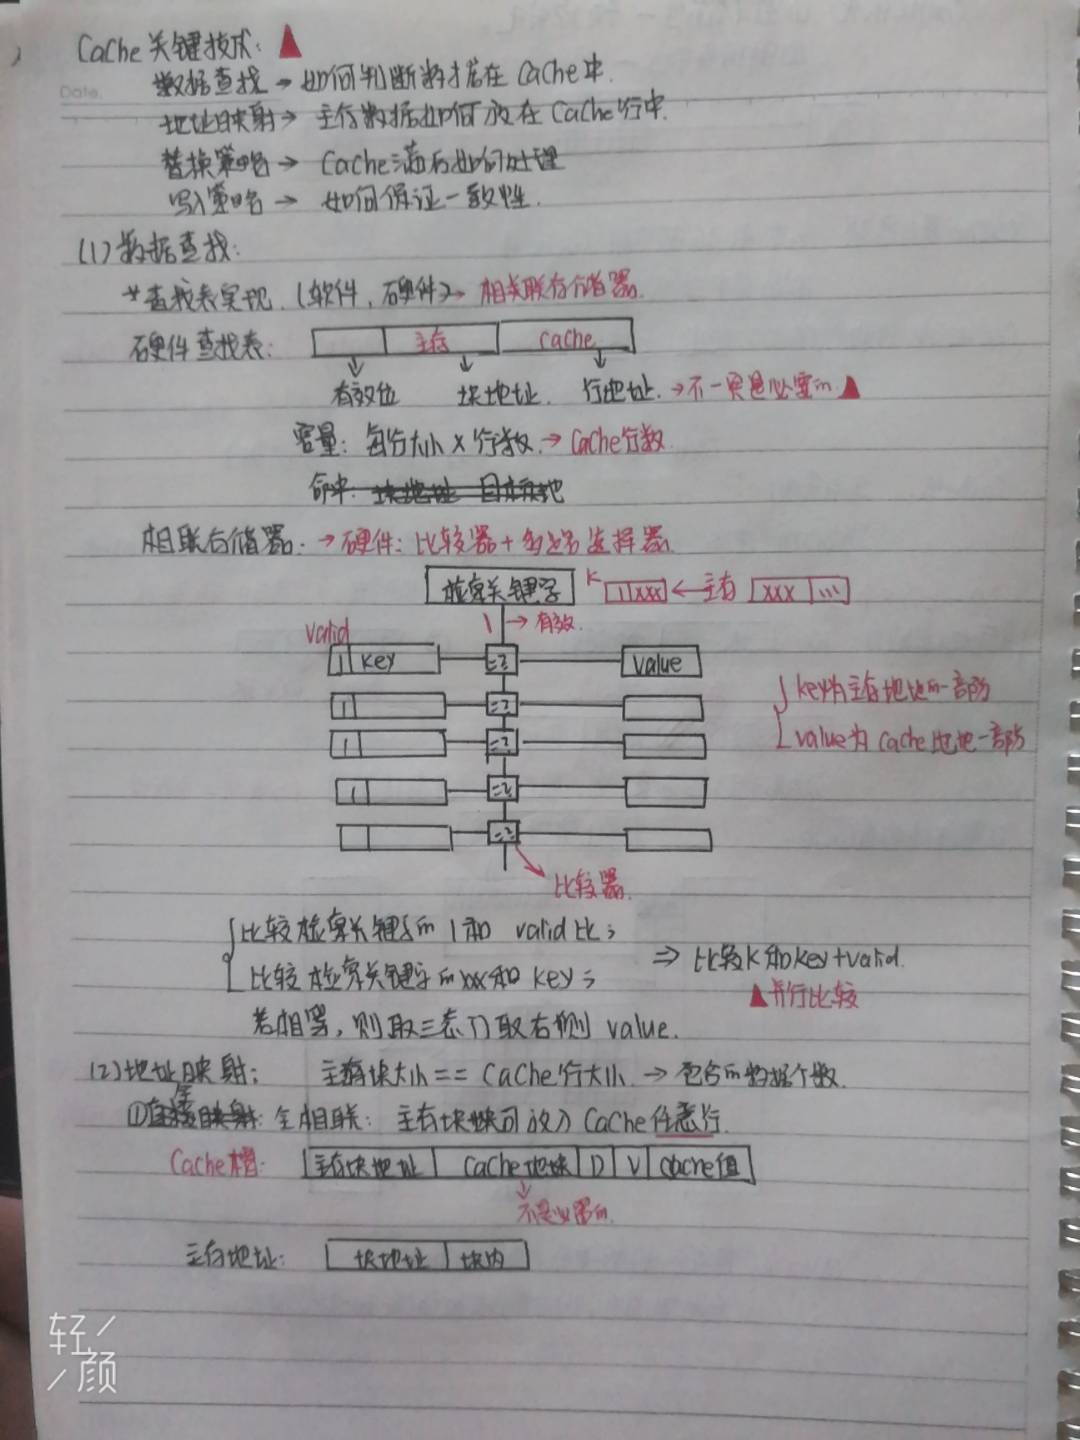 Cache关键技术:
数据查找→如何判断数据在Cache中.
地址映射→ 主存数据如何放在Cache行中.
替换策略→ Cache满后如何处理
写入策略→ 如何保证一致性.
(1)数据查找:
查找表实现.(软件,硬件)→相关联存储器.
硬件查找表: 主存 Cache
有效位 块地址. 行地址.→不一定是必要的.
容量: 每行大小×行数.→Cache行数.
命中.
相联存储器.→硬件:比较器+多路选择器.
检索关键字 K 1 xxx ←主存 xxx ...
1 →有效.
valid
1 key =? value
1 =?
1 =?
1 =?
=?
key为主存地址的一部分
value为cache地址一部分
比较器.
比较检索关键字的1和 valid比;
比较检索关键字的xxx和key;
⇒ 比较K和key+valid.
▲并行比较
若相等,则取三态门取右侧 value.
(2)地址映射: 主存块大小==Cache行大小.→包含的数据个数.
① 全相联: 主存块可放入Cache任意行.
Cache槽: 主存块地址 Cache地块 D V Cache值
不是必要的.
主存地址: 块地址 块内
轻颜
Date.